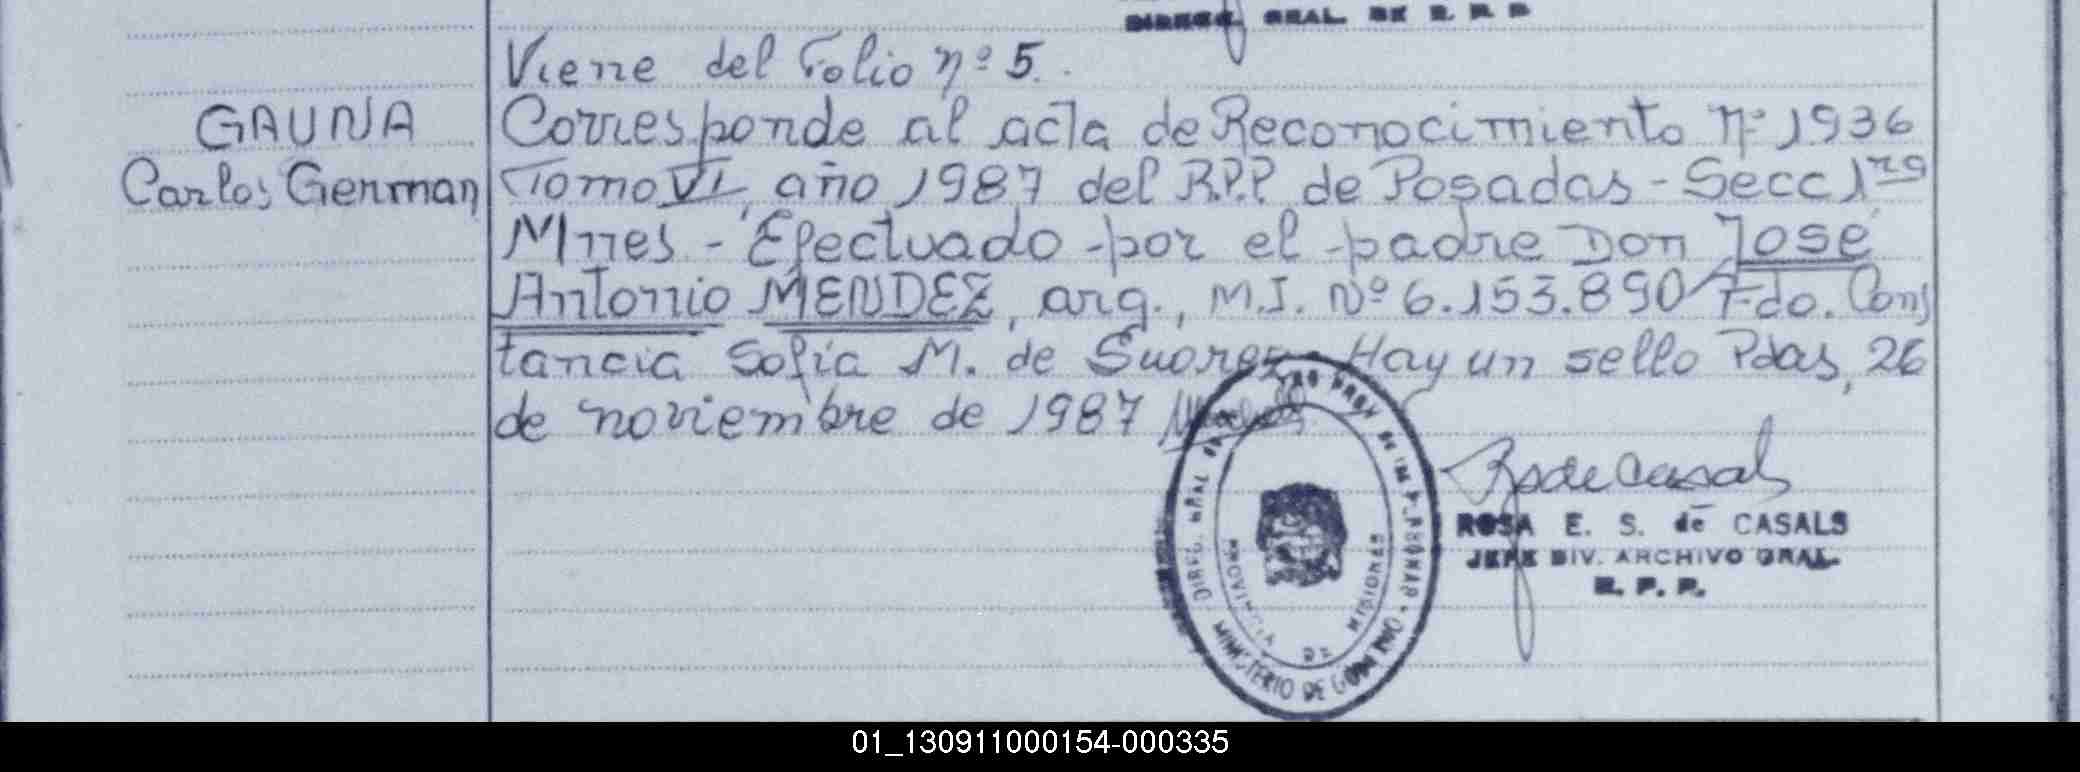 DIREC. GRAL. DE R. P. P.
Viene del Folio nº 5.
GAUNA
Carlos German
Corresponde al acta de Reconocimiento Nº 1936
Tomo VI, año 1987 del R.P.P. de Posadas - Secc 1ra
Mnes - Efectuado por el padre Don José
Antonio MENDEZ, arg., M.I. Nº 6.153.890 Fdo. Cons
tancia Sofia M. de Suarez. Hay un sello Pdas, 26
de noviembre de 1987
ROSA E. S. de CASALS
JEFE DIV. ARCHIVO GRAL.
R. P. P.
PROVINCIA DE MISIONES
MINISTERIO DE
01_130911000154-000335